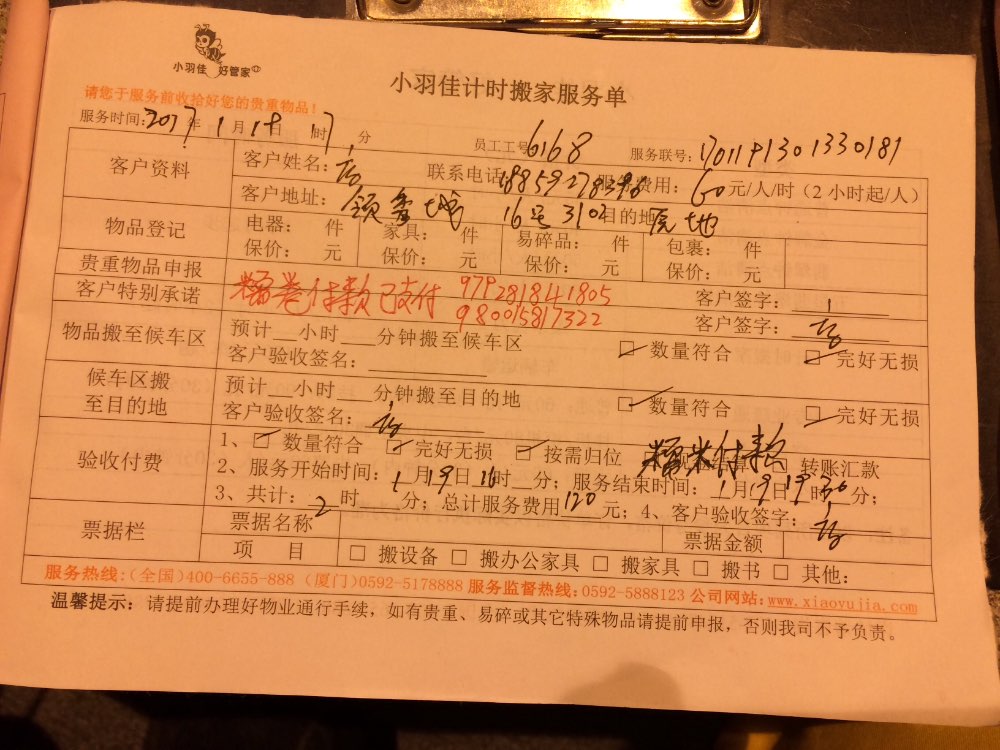 小羽佳 好管家
小羽佳计时搬家服务单
请您于服务前收拾好您的贵重物品!
服务时间:2017年1月19日 17时 分 员工工号6168 服务联号:1701191301330181
客户资料 客户姓名: 联系电话: 服务费用: 60元/人/时(2小时起/人)
客户地址: 16号3102 目的地:原地
物品登记 电器: 件 家具: 件 易碎品: 件 包裹: 件
保价: 元 保价: 元 保价: 元 保价: 元
贵重物品申报 客户签字:
客户特别承诺 付款已支付 979281841805
980015817322 客户签字:
物品搬至候车区 预计__小时___分钟搬至候车区 ☑ 数量符合 ☑ 完好无损
客户验收签名:
候车区搬至目的地 预计__小时___分钟搬至目的地 ☑ 数量符合 ☑ 完好无损
客户验收签名:
验收付费 1、☑ 数量符合 ☑ 完好无损 ☑ 按需归位 付款 □ 转账汇款
2、服务开始时间:1月19日16时__分;服务结束时间:1月19日19时30分;
3、共计:2时___分;总计服务费用120元;4、客户验收签字:
票据栏 票据名称 票据金额
项 目 □ 搬设备 □ 搬办公家具 □ 搬家具 □ 搬书 □ 其他:
服务热线:(全国)400-6655-888 (厦门)0592-5178888 服务监督热线:0592-5888123 公司网站:www.xiaoyujia.com
温馨提示:请提前办理好物业通行手续,如有贵重、易碎或其它特殊物品请提前申报,否则我司不予负责。